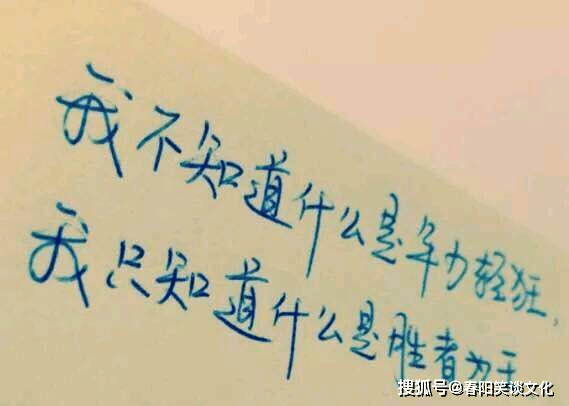 我不知道什么是年少轻狂,
我只知道什么是胜者为王
搜狐号@春阳笑谈文化